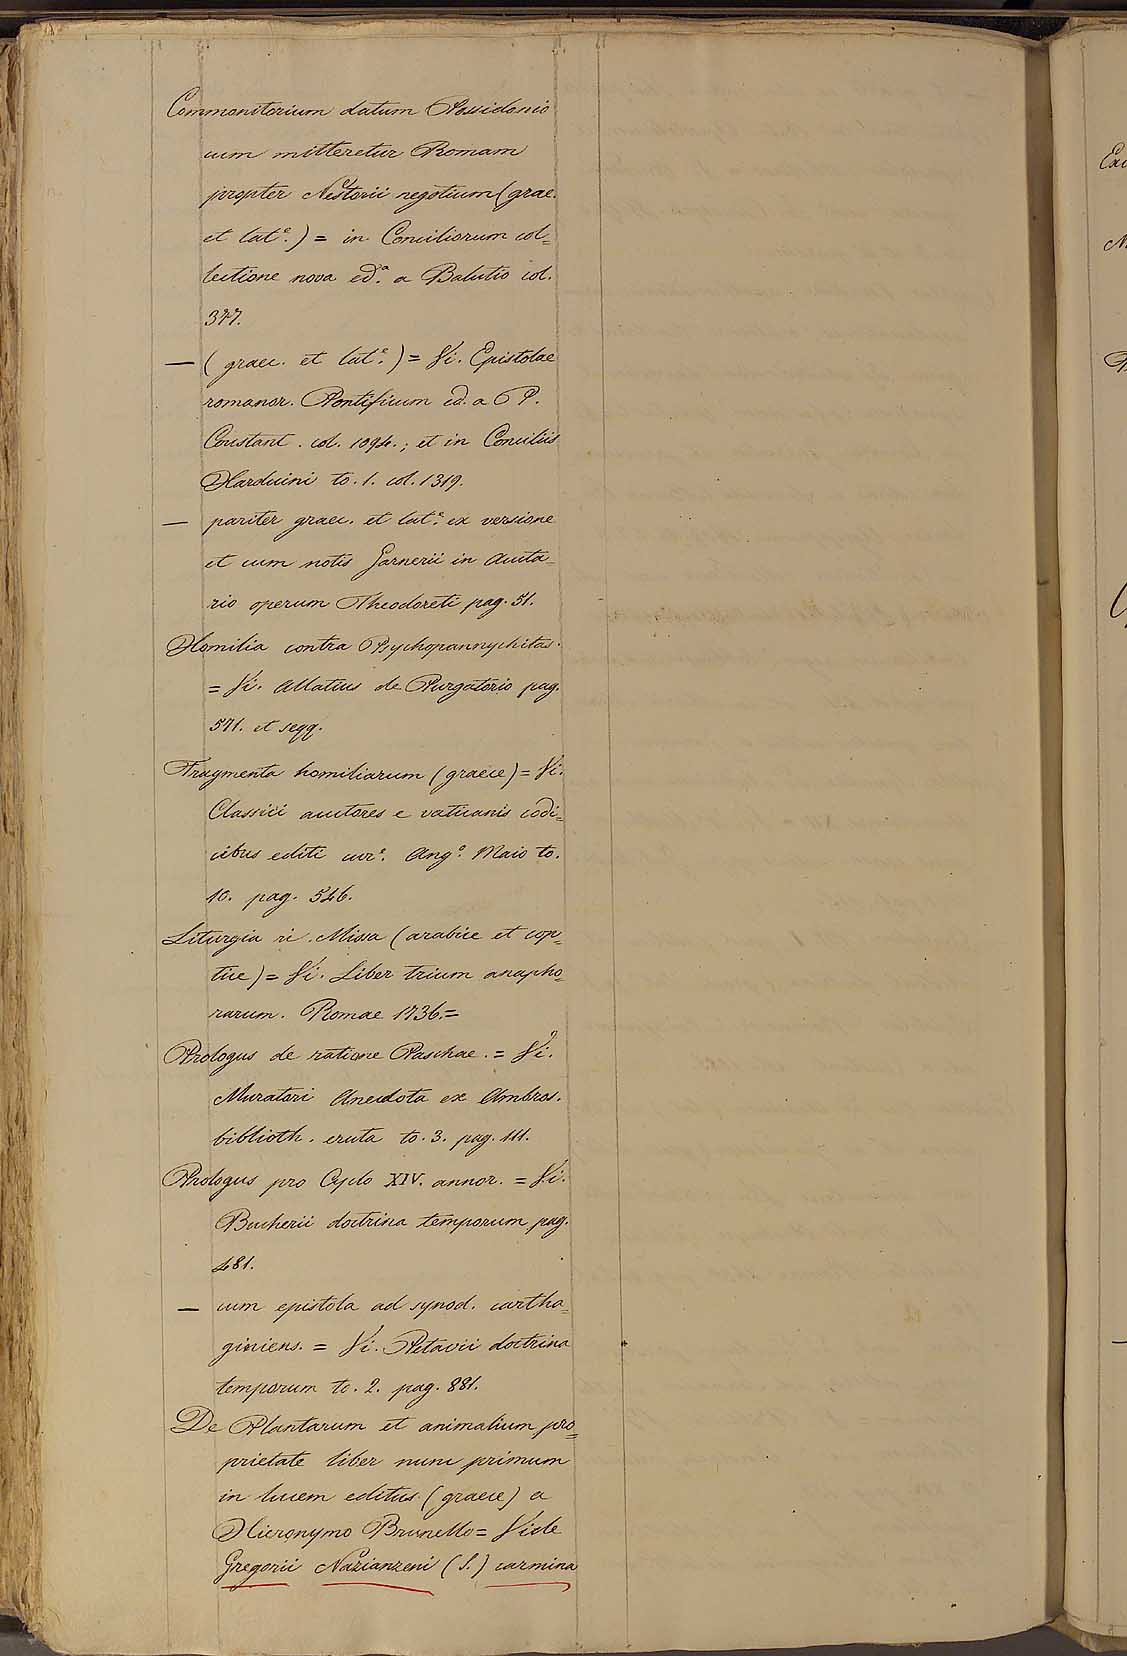 Commonitorium datum Possidonio
cum mitteretur Romam
propter Nestorii negotium (grae.
et lat.e) = in Conciliorum col=
lectione nova ed.a a Balutio col.
377.
— (graec. et lat.e) = Vi. Epistolae
romanor. Pontificum ed. a P.
Constant. col. 1094.; et in Conciliis
Harduini to. 1. col. 1319.
— pariter graec. et lat.e ex versione
et cum notis Garnerii in aucta=
rio operum Theodoreti pag. 51.
Homilia contra Psychopannychitas.
= Vi. Allatius de Purgatorio pag.
571. et seqq.
Fragmenta homiliarum (graece) = Vi.
Classici auctores e vaticanis codi=
cibus editi cur.e Ang.o Maio to.
10. pag. 546.
Liturgia vi. Missa (arabice et cop=
tice) = Vi. Liber trium anapho=
rarum. Romae 1736. =
Prologus de ratione Paschae. = Vi.
Muratori Anecdota ex Ambros.
biblioth. eruta to. 3. pag. 111.
Prologus pro Cyclo XIV. annor. = Vi.
Bucherii doctrina temporum pag.
481.
— cum epistola ad synod. cartha=
giniens. = Vi. Petavii doctrina
temporum to. 2. pag. 881.
De Plantarum et animalium pro=
prietate liber nunc primum
in lucem editus (graece) a
Hieronymo Brunello = Vide
Gregorii Nazianzeni (S.) carmina